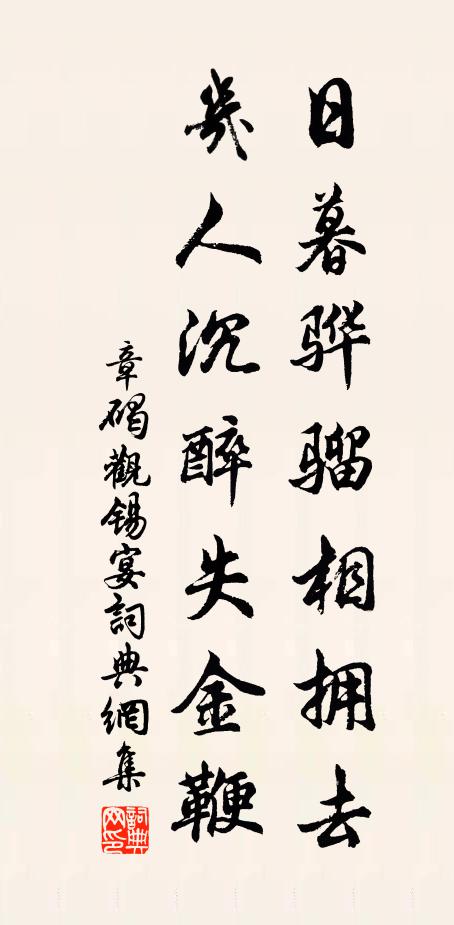 日暮骅骝相拥去
几人沉醉失金鞭
章碣觀锡宴詞典網集
詞典網印